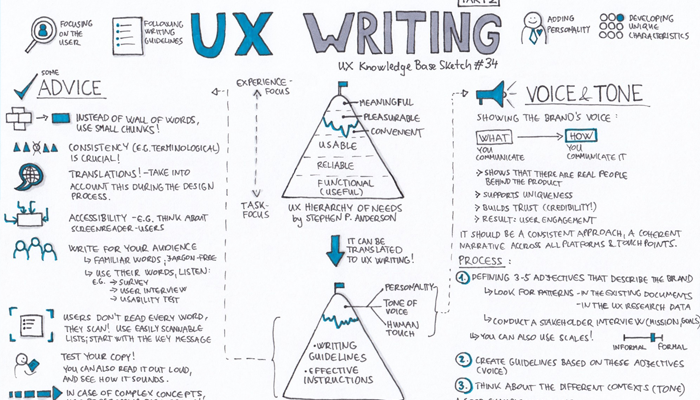 PART 2
FOCUSING
ON THE
USER
FOLLOWING
WRITING
GUIDELINES
UX WRITING
UX Knowledge Base Sketch #34
ADDING
PERSONALITY
DEVELOPING
UNIQUE
CHARACTERISTICS
SOME
ADVICE
INSTEAD OF WALL OF WORDS,
USE SMALL CHUNKS!
CONSISTENCY (E.G. TERMINOLOGICAL)
IS CRUCIAL!
TRANSLATIONS! - TAKE INTO
ACCOUNT THIS DURING THE DESIGN
PROCESS.
ACCESSIBILITY - E.G. THINK ABOUT
SCREENREADER-USERS
WRITE FOR YOUR AUDIENCE
FAMILIAR WORDS, JARGON-FREE
USE THEIR WORDS, LISTEN:
E.G. → SURVEY
→ USER INTERVIEW
→ USABILITY TEST
USERS DON'T READ EVERY WORD,
THEY SCAN! USE EASILY SCANNABLE
LISTS; START WITH THE KEY MESSAGE
TEST YOUR COPY!
YOU CAN ALSO READ IT OUT LOUD,
AND SEE HOW IT SOUNDS.
IN CASE OF COMPLEX CONCEPTS,
EXPERIENCE-
FOCUS
TASK-
FOCUS
MEANINGFUL
PLEASURABLE
CONVENIENT
USABLE
RELIABLE
FUNCTIONAL
(USEFUL)
UX HIERARCHY OF NEEDS
by STEPHEN P. ANDERSON
IT CAN BE
TRANSLATED
TO UX WRITING!
PERSONALITY
TONE OF
VOICE
HUMAN
TOUCH
• WRITING
GUIDELINES
• EFFECTIVE
INSTRUCTIONS
VOICE & TONE
SHOWING THE BRAND'S VOICE:
WHAT → HOW
YOU
COMMUNICATE
YOU
COMMUNICATE IT
> SHOWS THAT THERE ARE REAL PEOPLE
BEHIND THE PRODUCT
> SUPPORTS UNIQUENESS
> BUILDS TRUST (CREDIBILITY!)
> RESULT: USER ENGAGEMENT
IT SHOULD BE A CONSISTENT APPROACH, A COHERENT
NARRATIVE ACROSS ALL PLATFORMS & TOUCHPOINTS.
PROCESS:
1. DEFINING 3-5 ADJECTIVES THAT DESCRIBE THE BRAND
LOOK FOR PATTERNS - IN THE EXISTING DOCUMENTS
- IN THE UX RESEARCH DATA
CONDUCT A STAKEHOLDER INTERVIEW (MISSION, GOALS)
YOU CAN ALSO USE SCALES!
INFORMAL FORMAL
2. CREATE GUIDELINES BASED ON THESE ADJECTIVES
(VOICE)
3. THINK ABOUT THE DIFFERENT CONTEXTS (TONE)